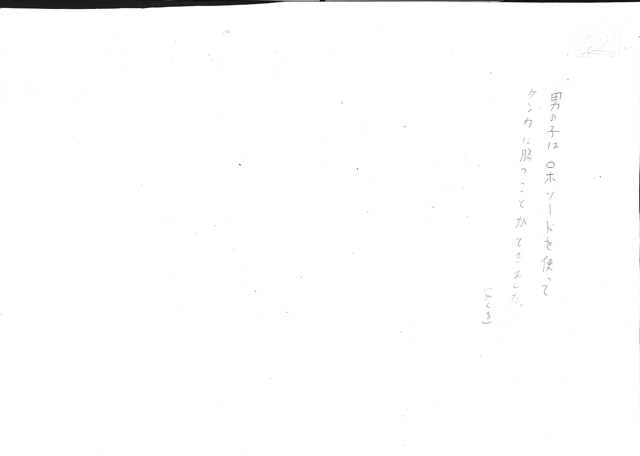 男の子はロボソードを使って
ケンカに勝つことができました。